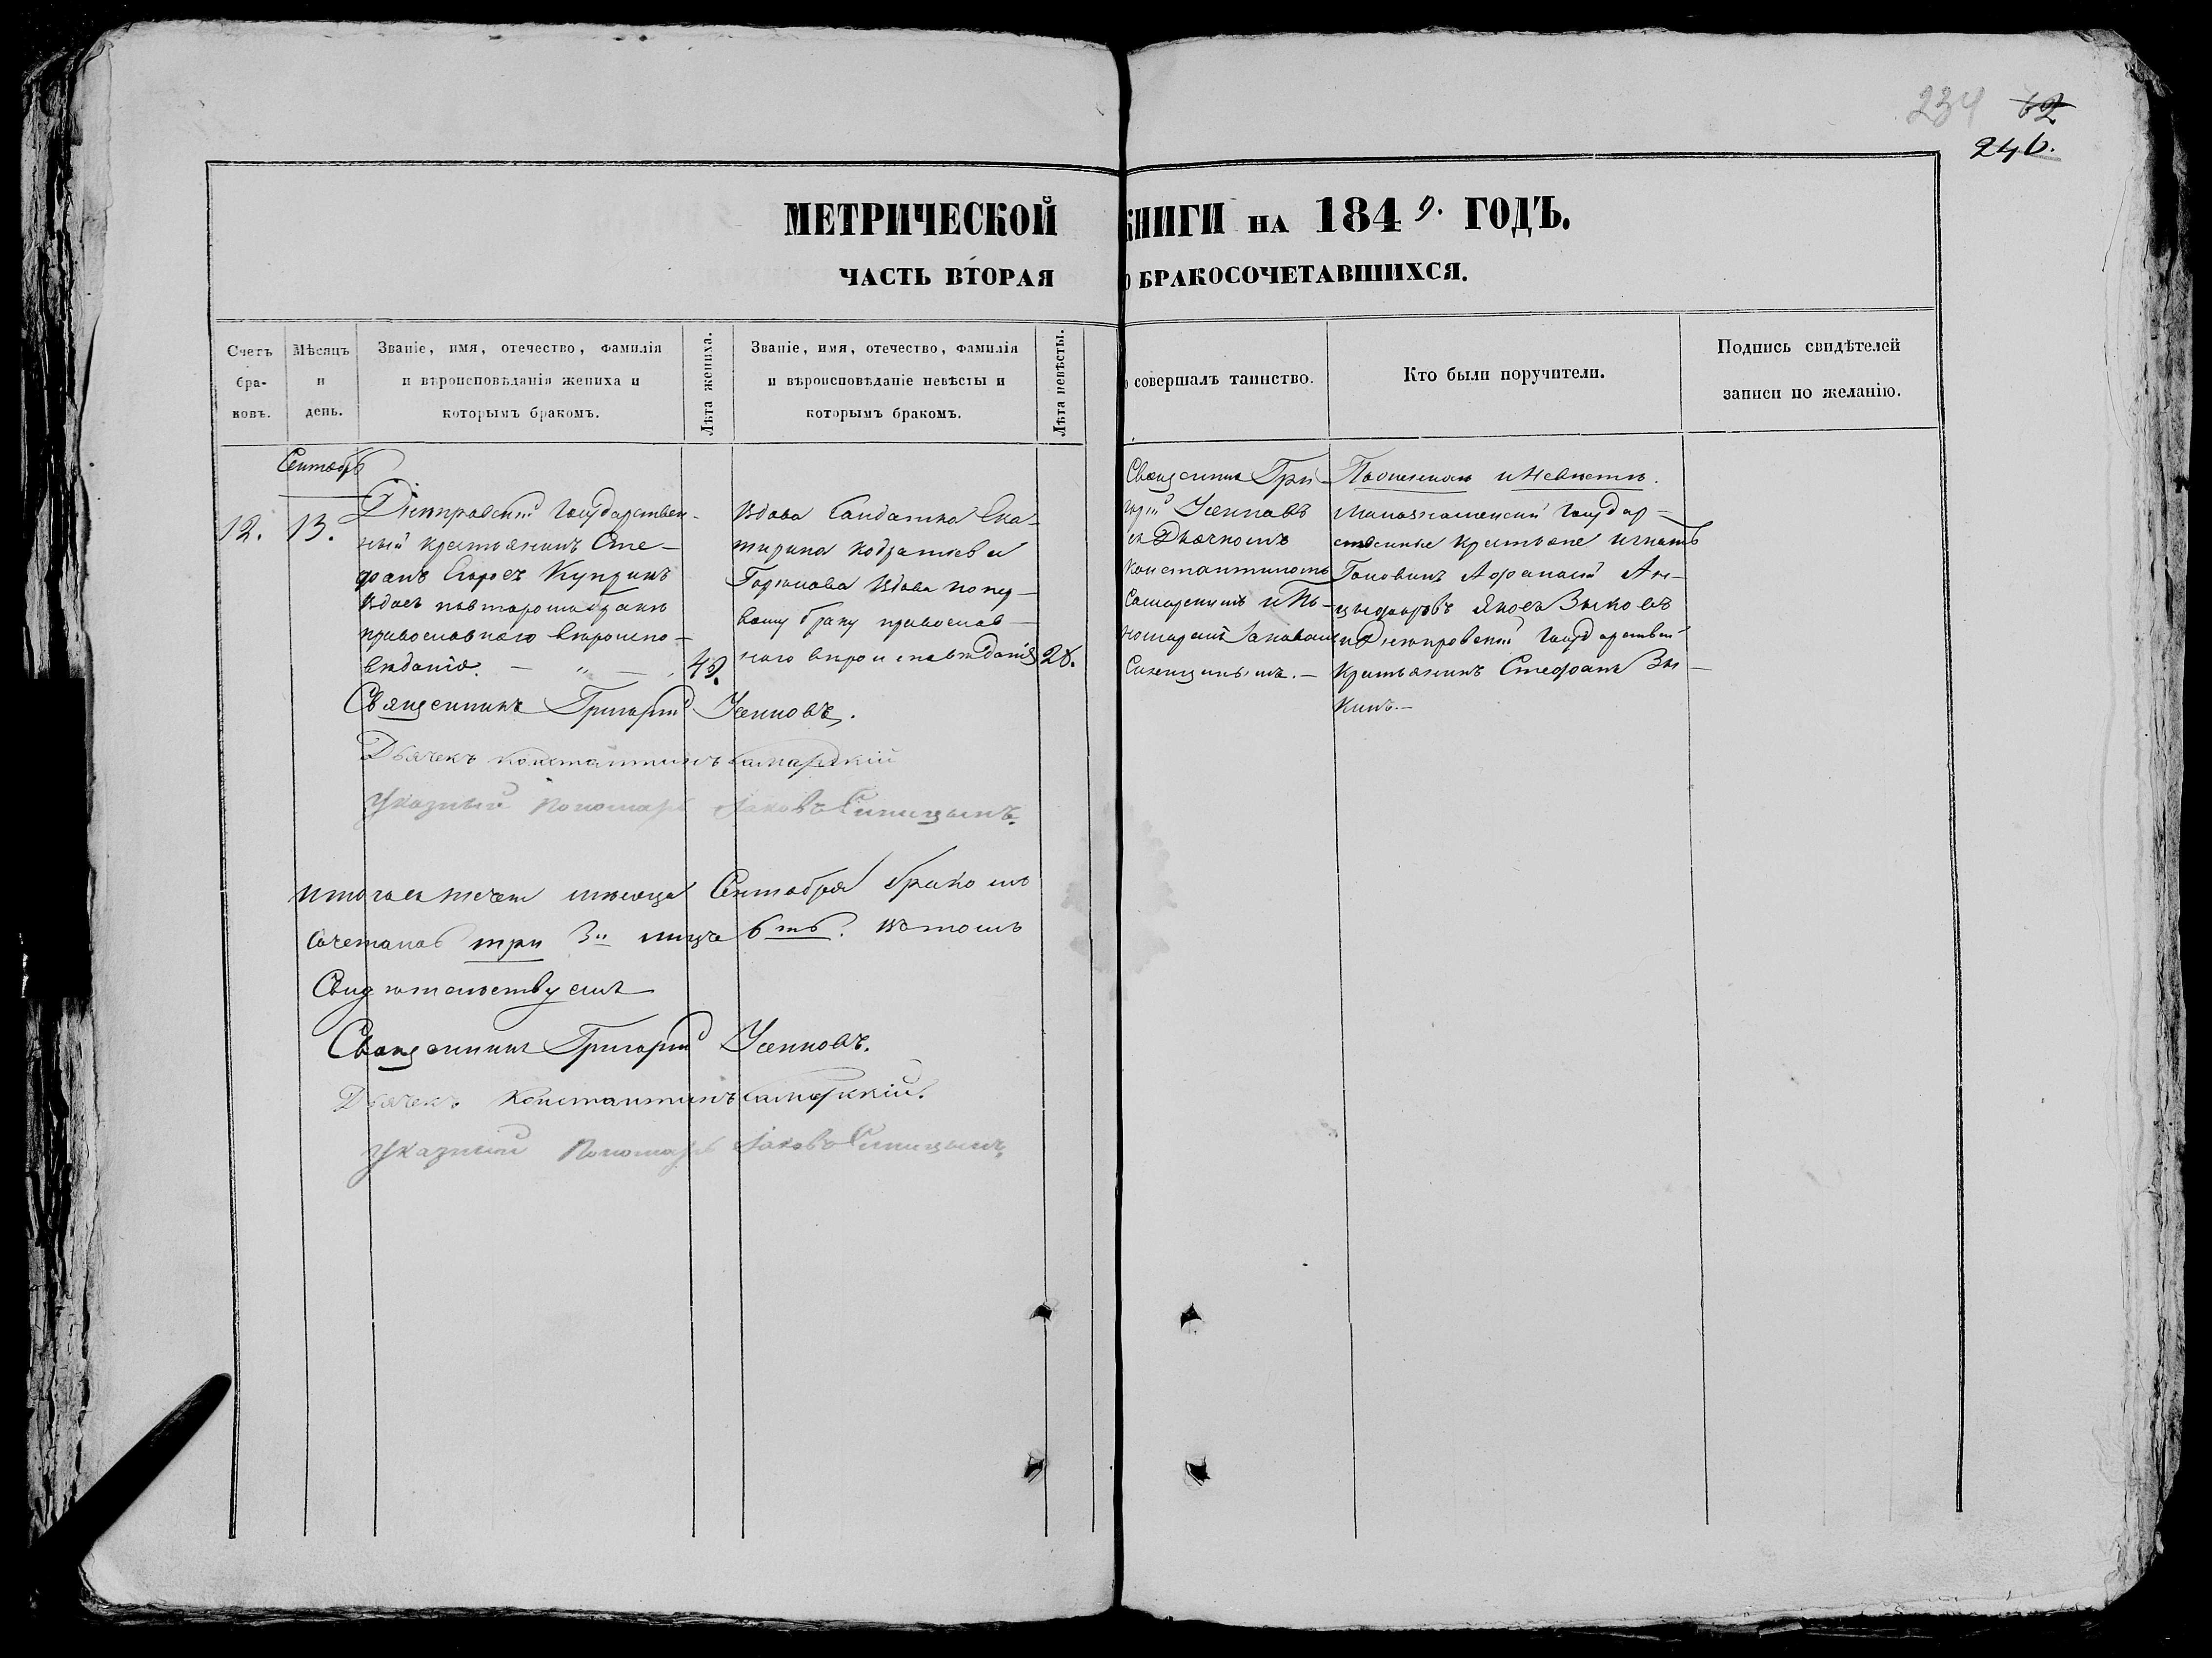 234 62
246.
МЕТРИЧЕСКОЙ КНИГИ НА 1849. ГОДЪ.
ЧАСТЬ ВТОРАЯ О БРАКОСОЧЕТАВШИХСЯ.
Счетъ бра- ковъ.
Мѣсяцъ и день.
Званіе, имя, отечество, фамилія
и вѣроисповѣданія жениха и
которымъ бракомъ.
Лѣта жениха.
Званіе, имя, отечество, фамилія
и вѣроисповѣданіе невѣсты и
которымъ бракомъ.
Лѣта невѣсты.
совершалъ таинство.
Кто были поручители.
Подпись свидѣтелей
записи по желанію.
Сентябрь
12. 13.
Днѣпровскій Государствен-
ный крестьянинъ Сте-
фанъ Егоровъ Купринъ
вдовъ повторому браку
православнаго вѣроиспо-
вѣданія. — „ — 49.
Вдова Солдатка Ека-
терина Кодратіева
Вдова по пер-
вому браку православ-
наго вѣроисповѣданія 28.
Священникъ Гри-
горій Усенковъ
съ Дьячкомъ
Константиномъ
Самарскимъ и По-
номаремъ Іаковомъ
Синицынымъ. —
По женихѣ и Невѣстѣ.
Малознаменскій Государ-
ственные крестьяне Игнатъ
Головинъ Афанасій Ан-
цыфоровъ Яковъ Зыковъ
и Днѣпровскій Государствен
Крестьянинъ Стефанъ Зы-
кинъ. —
Священникъ Григорій Усенковъ.
Дьячекъ Константинъ Самарскій
Указный Пономарь Іаковъ Синицынъ.
Итого въ теченіи мѣсяца Сентября бракомъ
сочеталось три 3и лицъ 6ть. Въ томъ
Свидѣтельствуемъ
Священникъ Григорій Усенковъ.
Дьячекъ Константинъ Самарскій.
Указный Пономарь Іаковъ Синицынъ